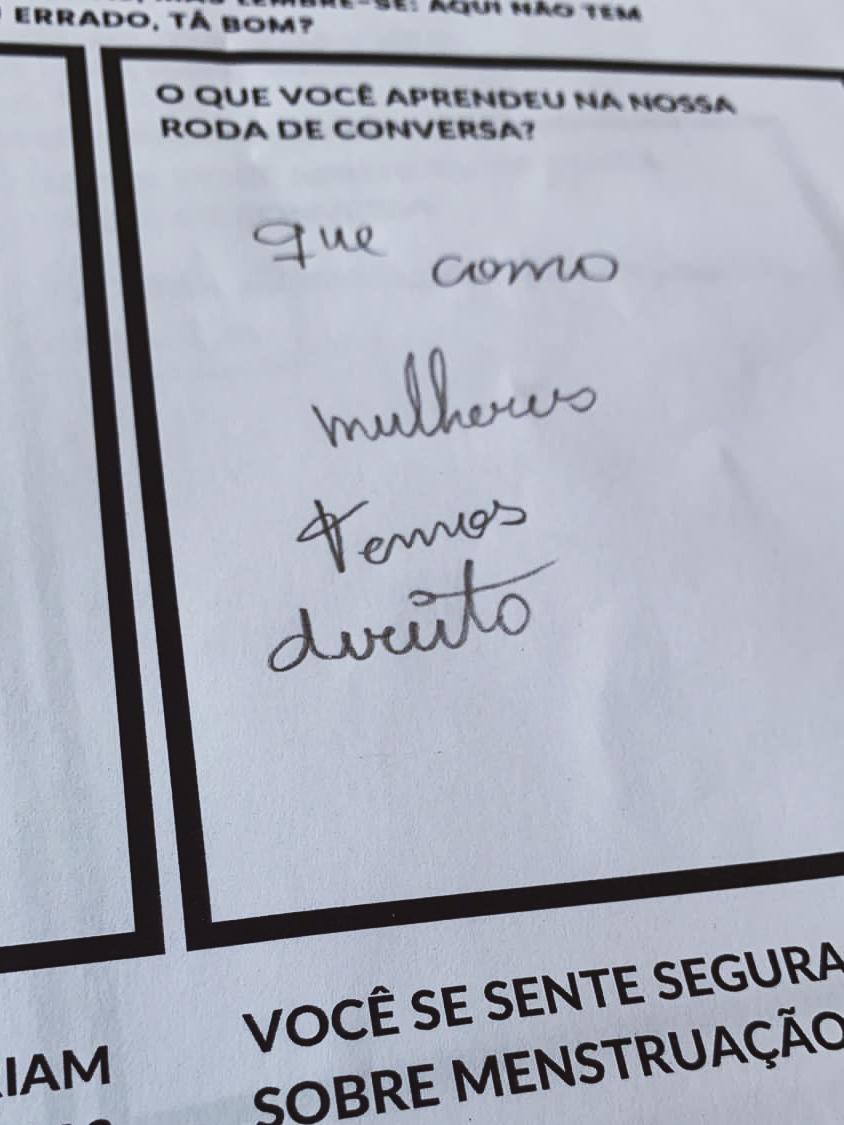 SE: AQUI NÃO TEM
ERRADO, TÁ BOM?
O QUE VOCÊ APRENDEU NA NOSSA
RODA DE CONVERSA?
que como
mulheres
temos
direito
VOCÊ SE SENTE SEGURA
SOBRE MENSTRUAÇÃO
IAM